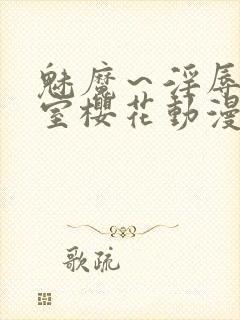 魅魔～淫辱
室櫻花動漫
歌疏